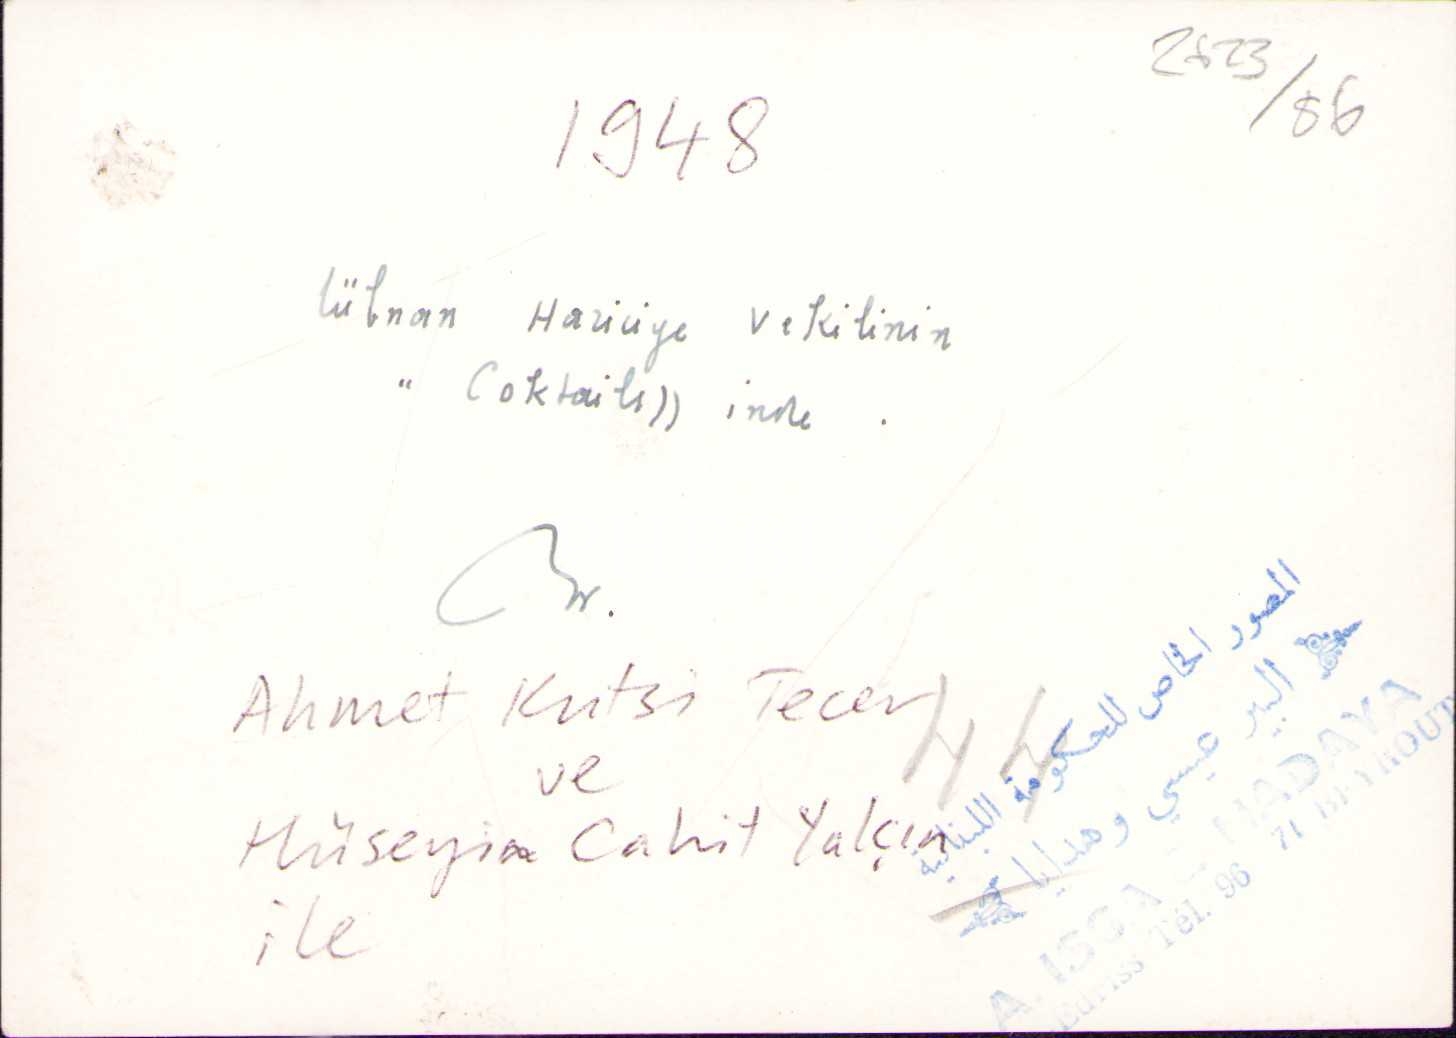 2823/86
1948
Lübnan Hariciye Vekilinin
" Coktails)) inde .
Ahmet Kutsi Tecer
ve
Hüseyin Cahit Yalçın
ile
44
المصور الخاص للحكومة اللبنانية
البير عيسي وهدايا
A. ISSA HADAYA
Edriss Tél. 96 71 BEYROUT